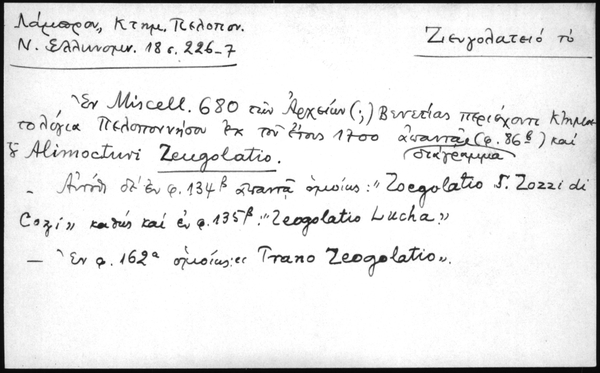 Λάμπρου, Κτημ. Πελοπον.
Ν. Ελληνομν. 18 σ. 226-7
Ζευγολατειό τὸ
Ἐν Miscell. 680 τῶν Ἀρχείων (;) Βενετίας περιέχοντι κτημα-
τολόγια Πελοποννήσου ἐκ τοῦ ἔτους 1700 ἀπαντᾶ (φ. 86β) καὶ
διάγραμμα
Alimocturi Zeugolatio.
- Αὐτόθι δ' ἐν φ. 134β ἀπαντᾷ ὁμοίως: "Zoegolatio S. Zozzi di
Cozi" καθὼς καὶ ἐν φ. 135β: "Zeogolatio Lucha."
- Ἐν φ. 162α ὁμοίως: "Trano Zeogolatio".